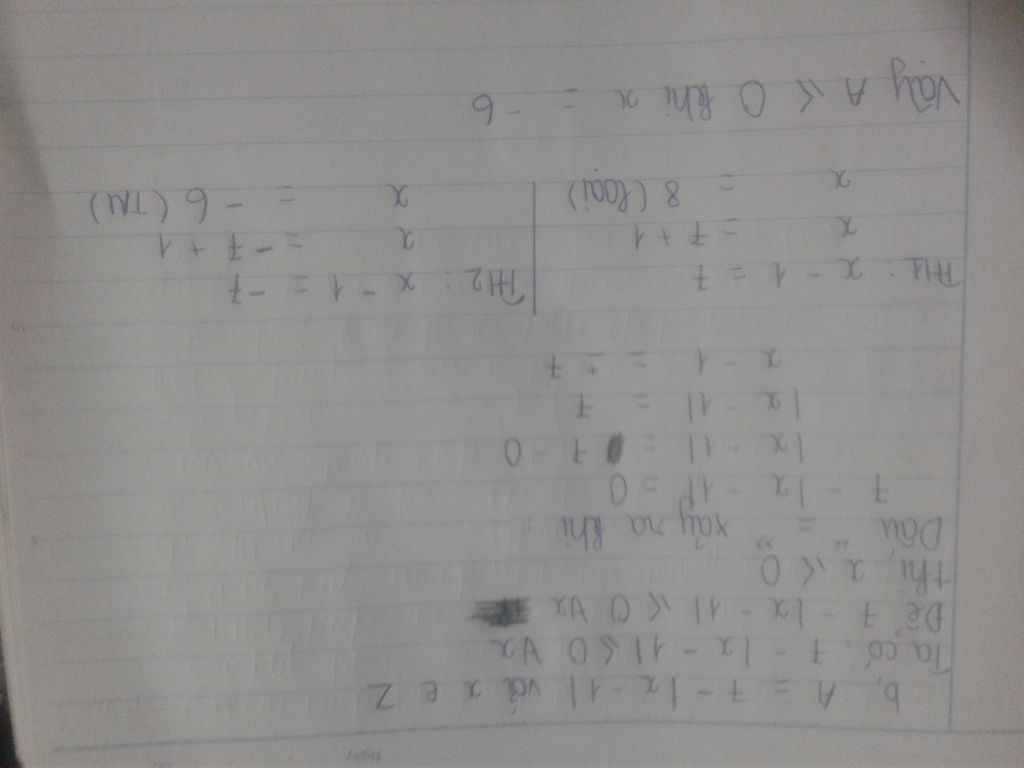 b, A = 7 - |x - 1| và x ∈ Z
Ta có: 7 - |x - 1| ≤ 0 ∀x
Để 7 - |x - 1| ≤ 0 ∀x
thì x ≤ 0
Dấu "=" xảy ra khi
7 - |x - 1| = 0
|x - 1| = 7 - 0
|x - 1| = 7
x - 1 = ± 7
TH1: x - 1 = 7
x = 7 + 1
x = 8 (loại)
TH2: x - 1 = -7
x = -7 + 1
x = -6 (TM)
Vậy A ≤ 0 khi x = -6